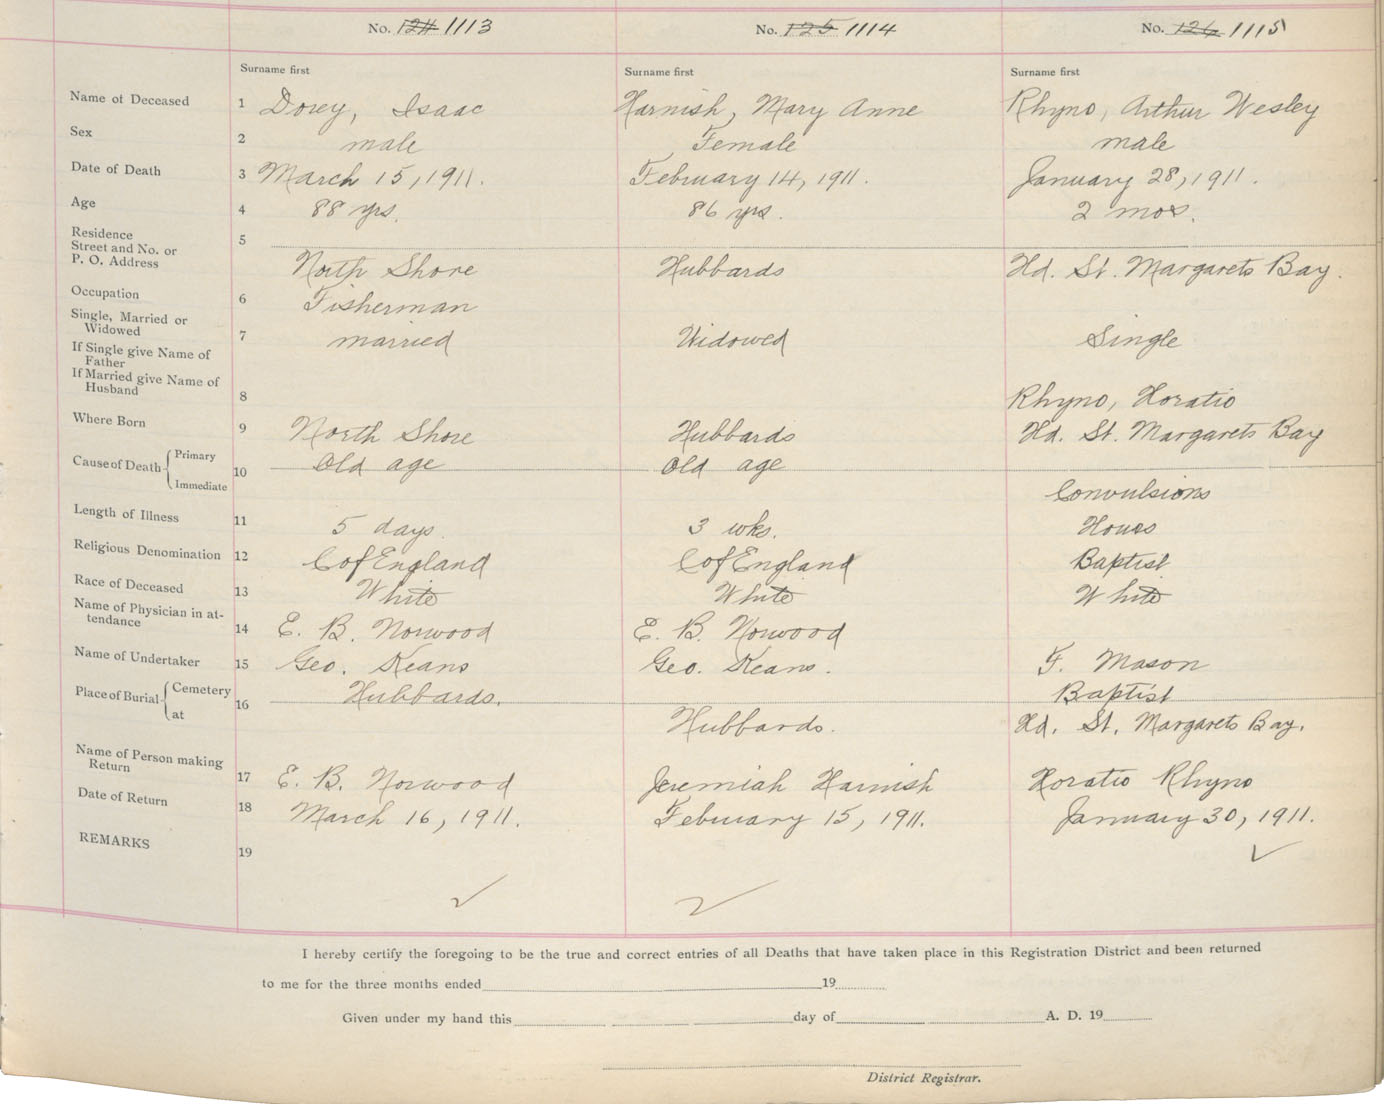 No. 124 1113 No. 125 1114 No. 126 1115
Surname first Surname first Surname first
Name of Deceased 1 Dorey, Isaac Harnish, Mary Anne Rhyno, Arthur Wesley
Sex 2 male Female male
Date of Death 3 March 15, 1911. February 14, 1911. January 28, 1911.
Age 4 88 yrs. 86 yrs. 2 mos.
Residence
Street and No. or 5
P. O. Address North Shore Hubbards Hd. St. Margarets Bay.
Occupation 6 Fisherman
Single, Married or
Widowed 7 married Widowed Single
If Single give Name of
Father
If Married give Name of
Husband 8 Rhyno, Horatio
Where Born 9 North Shore Hubbards Hd. St. Margarets Bay
Cause of Death Primary 10 Old age Old age
Immediate Convulsions
Length of Illness 11 5 days. 3 wks. Hours
Religious Denomination 12 C of England C of England Baptist
Race of Deceased 13 White White White
Name of Physician in at-
tendance 14 E. B. Norwood E. B. Norwood
Name of Undertaker 15 Geo. Keans Geo. Keans. F. Mason
Place of Burial Cemetery 16 Hubbards. Baptist
at Hubbards. Hd. St. Margarets Bay.
Name of Person making
Return 17 E. B. Norwood Jeremiah Harnish Horatio Rhyno
Date of Return 18 March 16, 1911. February 15, 1911. January 30, 1911.
REMARKS 19
I hereby certify the foregoing to be the true and correct entries of all Deaths that have taken place in this Registration District and been returned
to me for the three months ended 19
Given under my hand this day of A. D. 19
District Registrar.